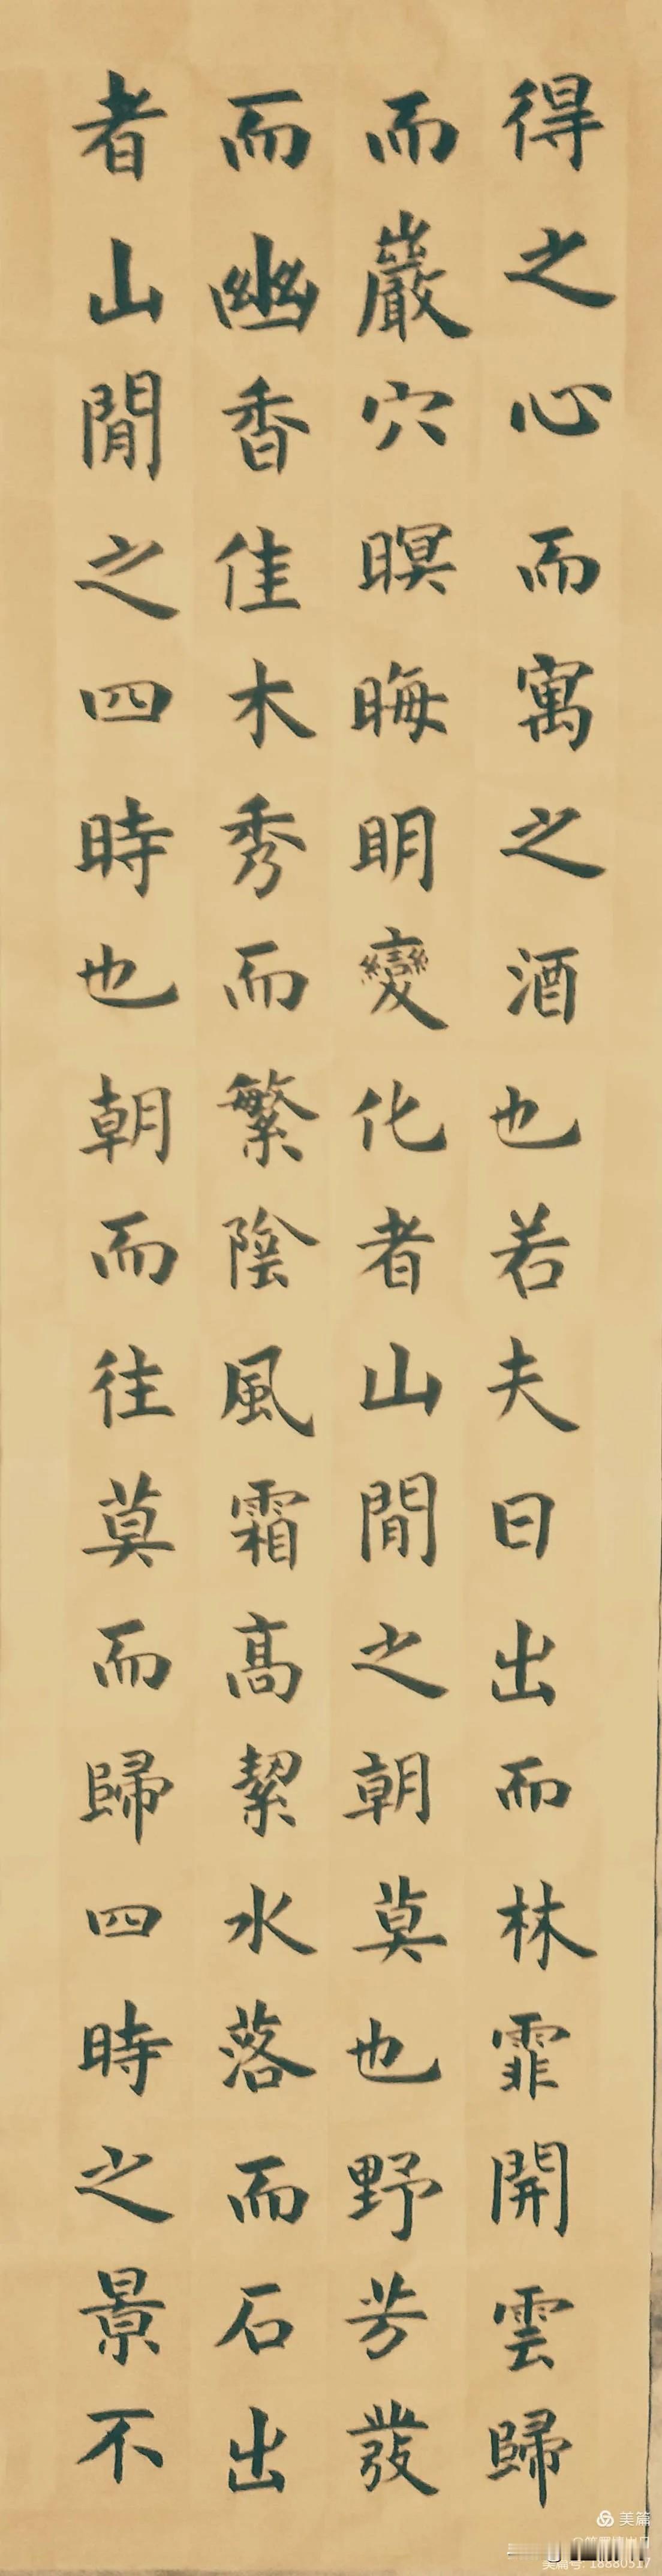 得之心而寓之酒也若夫日出而林霏開雲歸
而巖穴暝晦明變化者山閒之朝莫也野芳發
而幽香佳木秀而繁陰風霜高絜水落而石出
者山閒之四時也朝而往莫而歸四時之景不
美篇
美篇号: 18880517